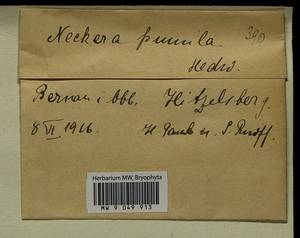 Neckera pumila. 390
Hedw.
Bernau i. Obb. Hitzelsberg.
8 VI 1916. H. Paul u.
Herbarium MW, Bryophyta
MW 9 049 913